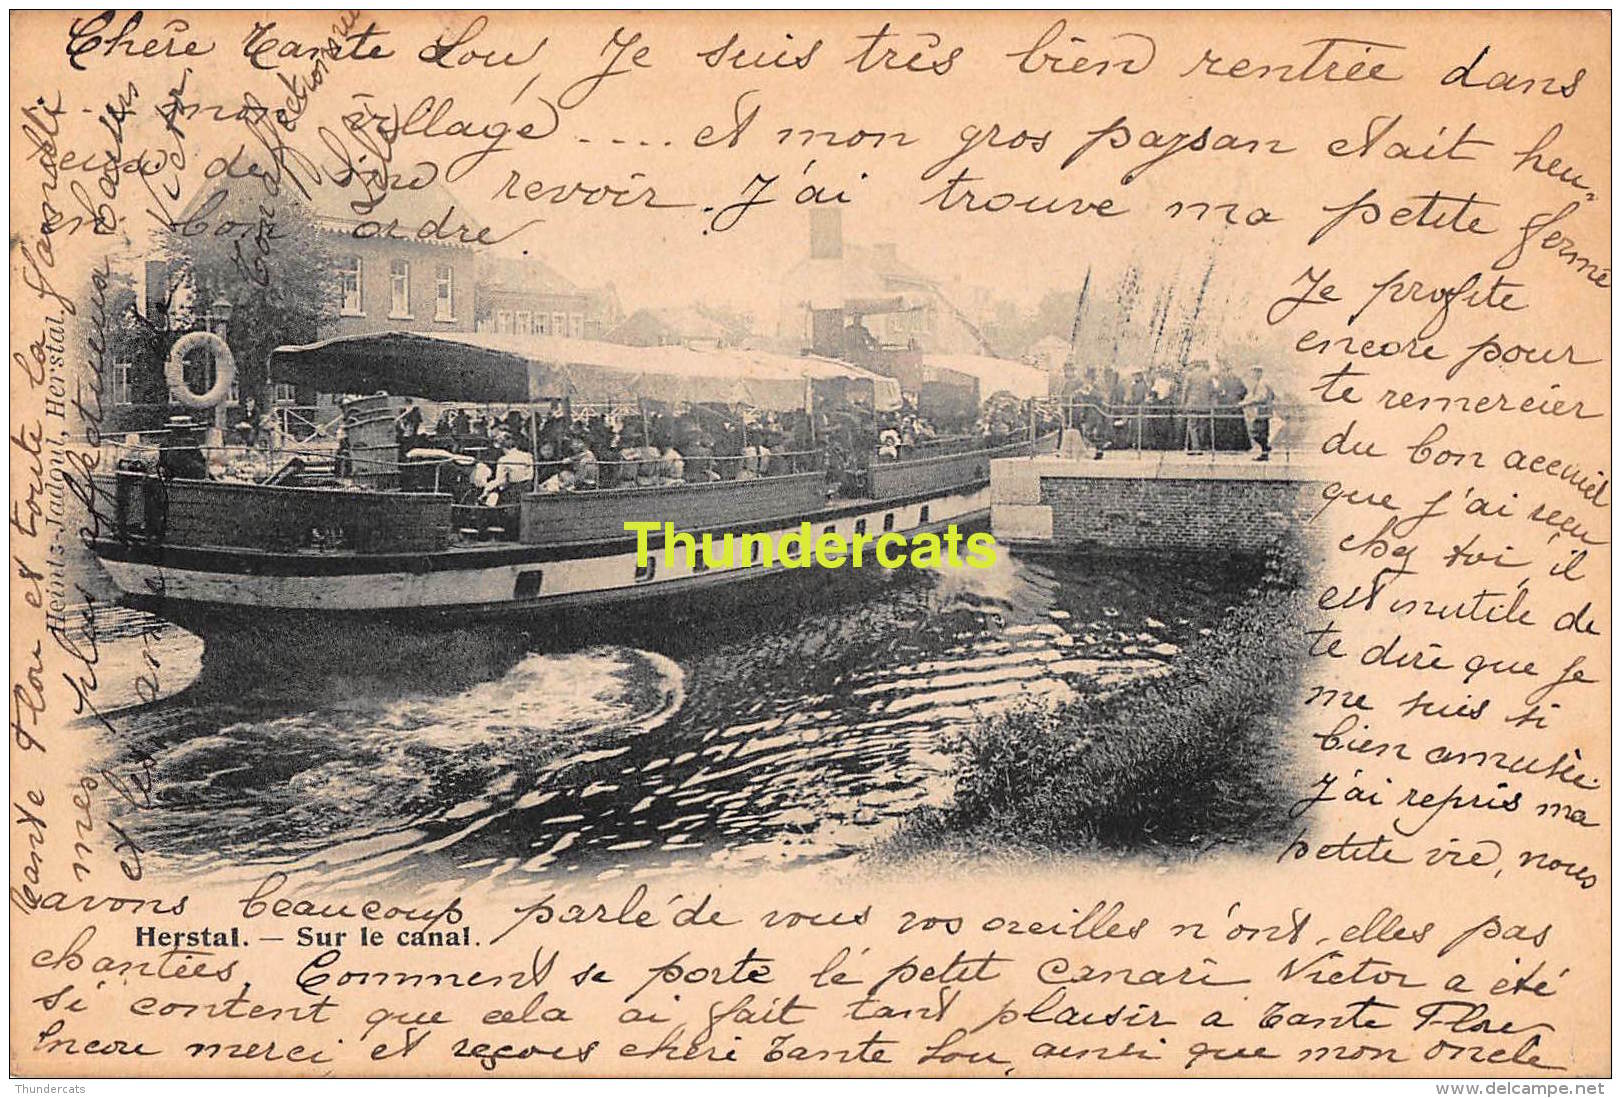 Chère Tante Lou, Je suis très bien rentrée dans
mon village .... et mon gros paysan était heu-
eux de me revoir. J'ai trouvé ma petite ferme
en bon ordre.
Je profite
encore pour
te remercier
du bon accueil
que j'ai reçu
chez toi, il
est inutile de
te dire que je
me suis si
bien amusée.
J'ai repris ma
petite vie, nous
avons beaucoup parlé de vous vos oreilles n'ont elles pas
chantées, Comment se porte le petit Canari Victor a été
si content que cela ai fait tant plaisir à Tante Flore
Encore merci, et reçois chère Tante Lou, ainsi que mon oncle
Tante Flore et toute la famille
mes plus affectueux baisers
et les
Victor
Ton affectionnée
Herstal. — Sur le canal.
Heintz-Jadoul, Herstal.
Thundercats
Thundercats
delcampe.net